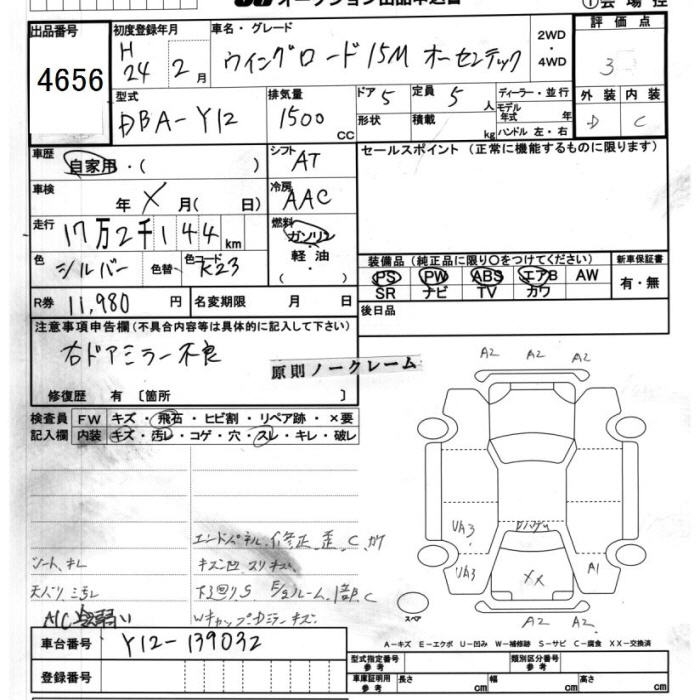 出品番号
4656
初度登録年月
H 24年 2月
車名・グレード
ウイングロード 15M オーセンテック
2WD
・
4WD
評価点
3
外装 内装
D C
型式
DBA-Y12
排気量
1500 CC
ドア 5
形状
定員 5 人
積載 kg
ディーラー・並行
モデル年式 年
ハンドル 左・右
車歴
自家用・( )
シフト
AT
セールスポイント (正常に機能するものに限ります)
車検
年 X 月( 日)
冷房
AAC
走行
17万2千144km
燃料
ガソリン
軽油
( ・ )
色
シルバー
色替
色コード
K23
装備品 (純正品に限り○をつけてください)
新車保証書
PS PW ABS エアB AW
SR ナビ TV カワ
有・無
R券 11,980 円
名変期限 月 日
後日品
注意事項申告欄 (不具合内容等は具体的に記入して下さい)
右ドアミラー不良
原則ノークレーム
修復歴 有 〔箇所 〕
検査員
記入欄
FW キズ・飛石・ヒビ割・リペア跡・×要
内装 キズ・汚レ・コゲ・穴・スレ・キレ・破レ
エンドパネル、修正、歪、C、カケ
シートキレ
キズ凹 スリキズ
A/C
Wキャップ・Dミラーキズ
A2 A2 A2
UA3
UA3
XX
A1
A2 A2
スペア
A-キズ E-エクボ U-凹み W-補修跡 S-サビ C-腐食 XX-交換済
車台番号 Y12-139032
登録番号
型式指定番号
参考
類別区分番号
参考
車庫証明用
参考
長さ cm
幅 cm
高さ cm